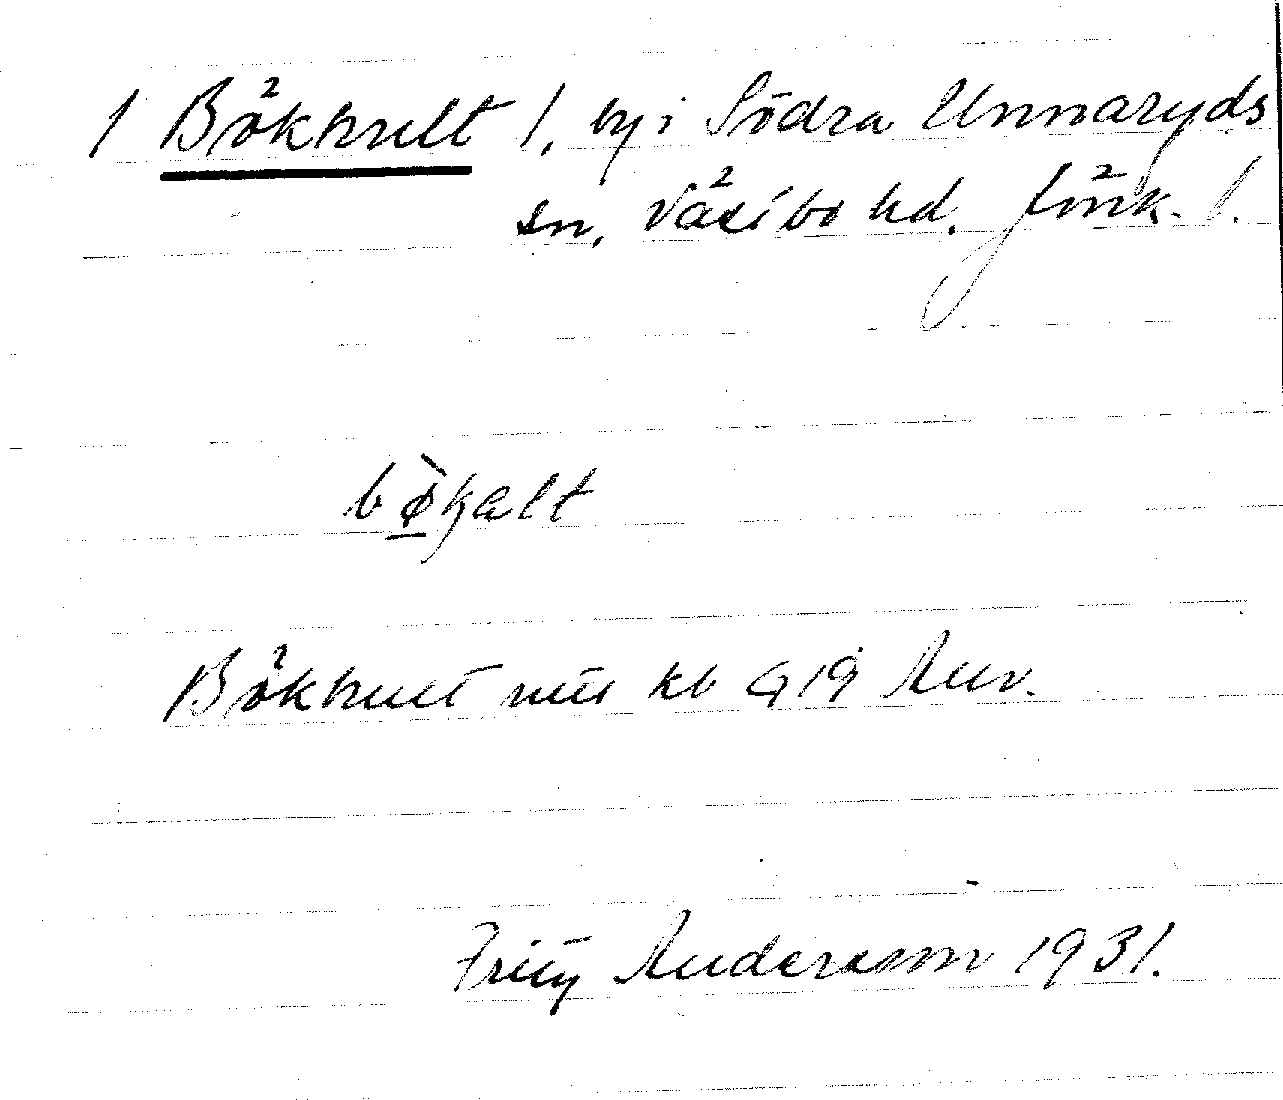 1 Bökhult 1, by i Södra Unnaryds
sn, Västbo hd. Jönk. l.
bø̀kalt
Bökhult mtl kb G19 Anv.
Fritz Andersson 1931.